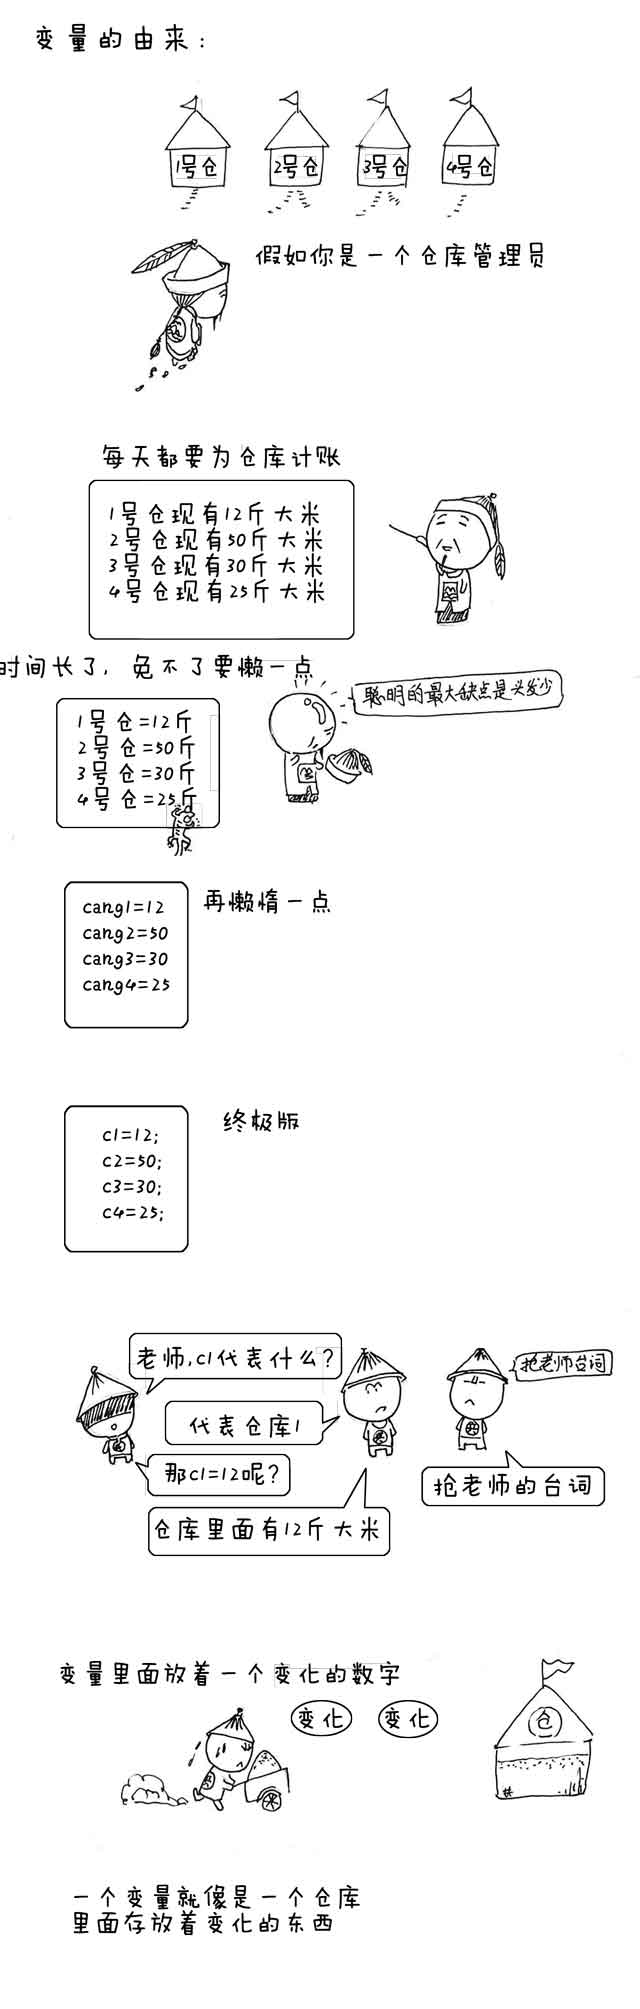 变量的由来：
1号仓
2号仓
3号仓
4号仓
假如你是一个仓库管理员
每天都要为仓库计账
1号仓现有12斤大米
2号仓现有50斤大米
3号仓现有30斤大米
4号仓现有25斤大米
时间长了，免不了要懒一点
聪明的最大缺点是头发少
1号仓=12斤
2号仓=50斤
3号仓=30斤
4号仓=25斤
再懒惰一点
cang1=12
cang2=50
cang3=30
cang4=25
终极版
c1=12;
c2=50;
c3=30;
c4=25;
老师,c1代表什么?
抢老师台词
代表仓库1
那c1=12呢?
抢老师的台词
仓库里面有12斤大米
变量里面放着一个变化的数字
变化
变化
仓
一个变量就像是一个仓库
里面存放着变化的东西